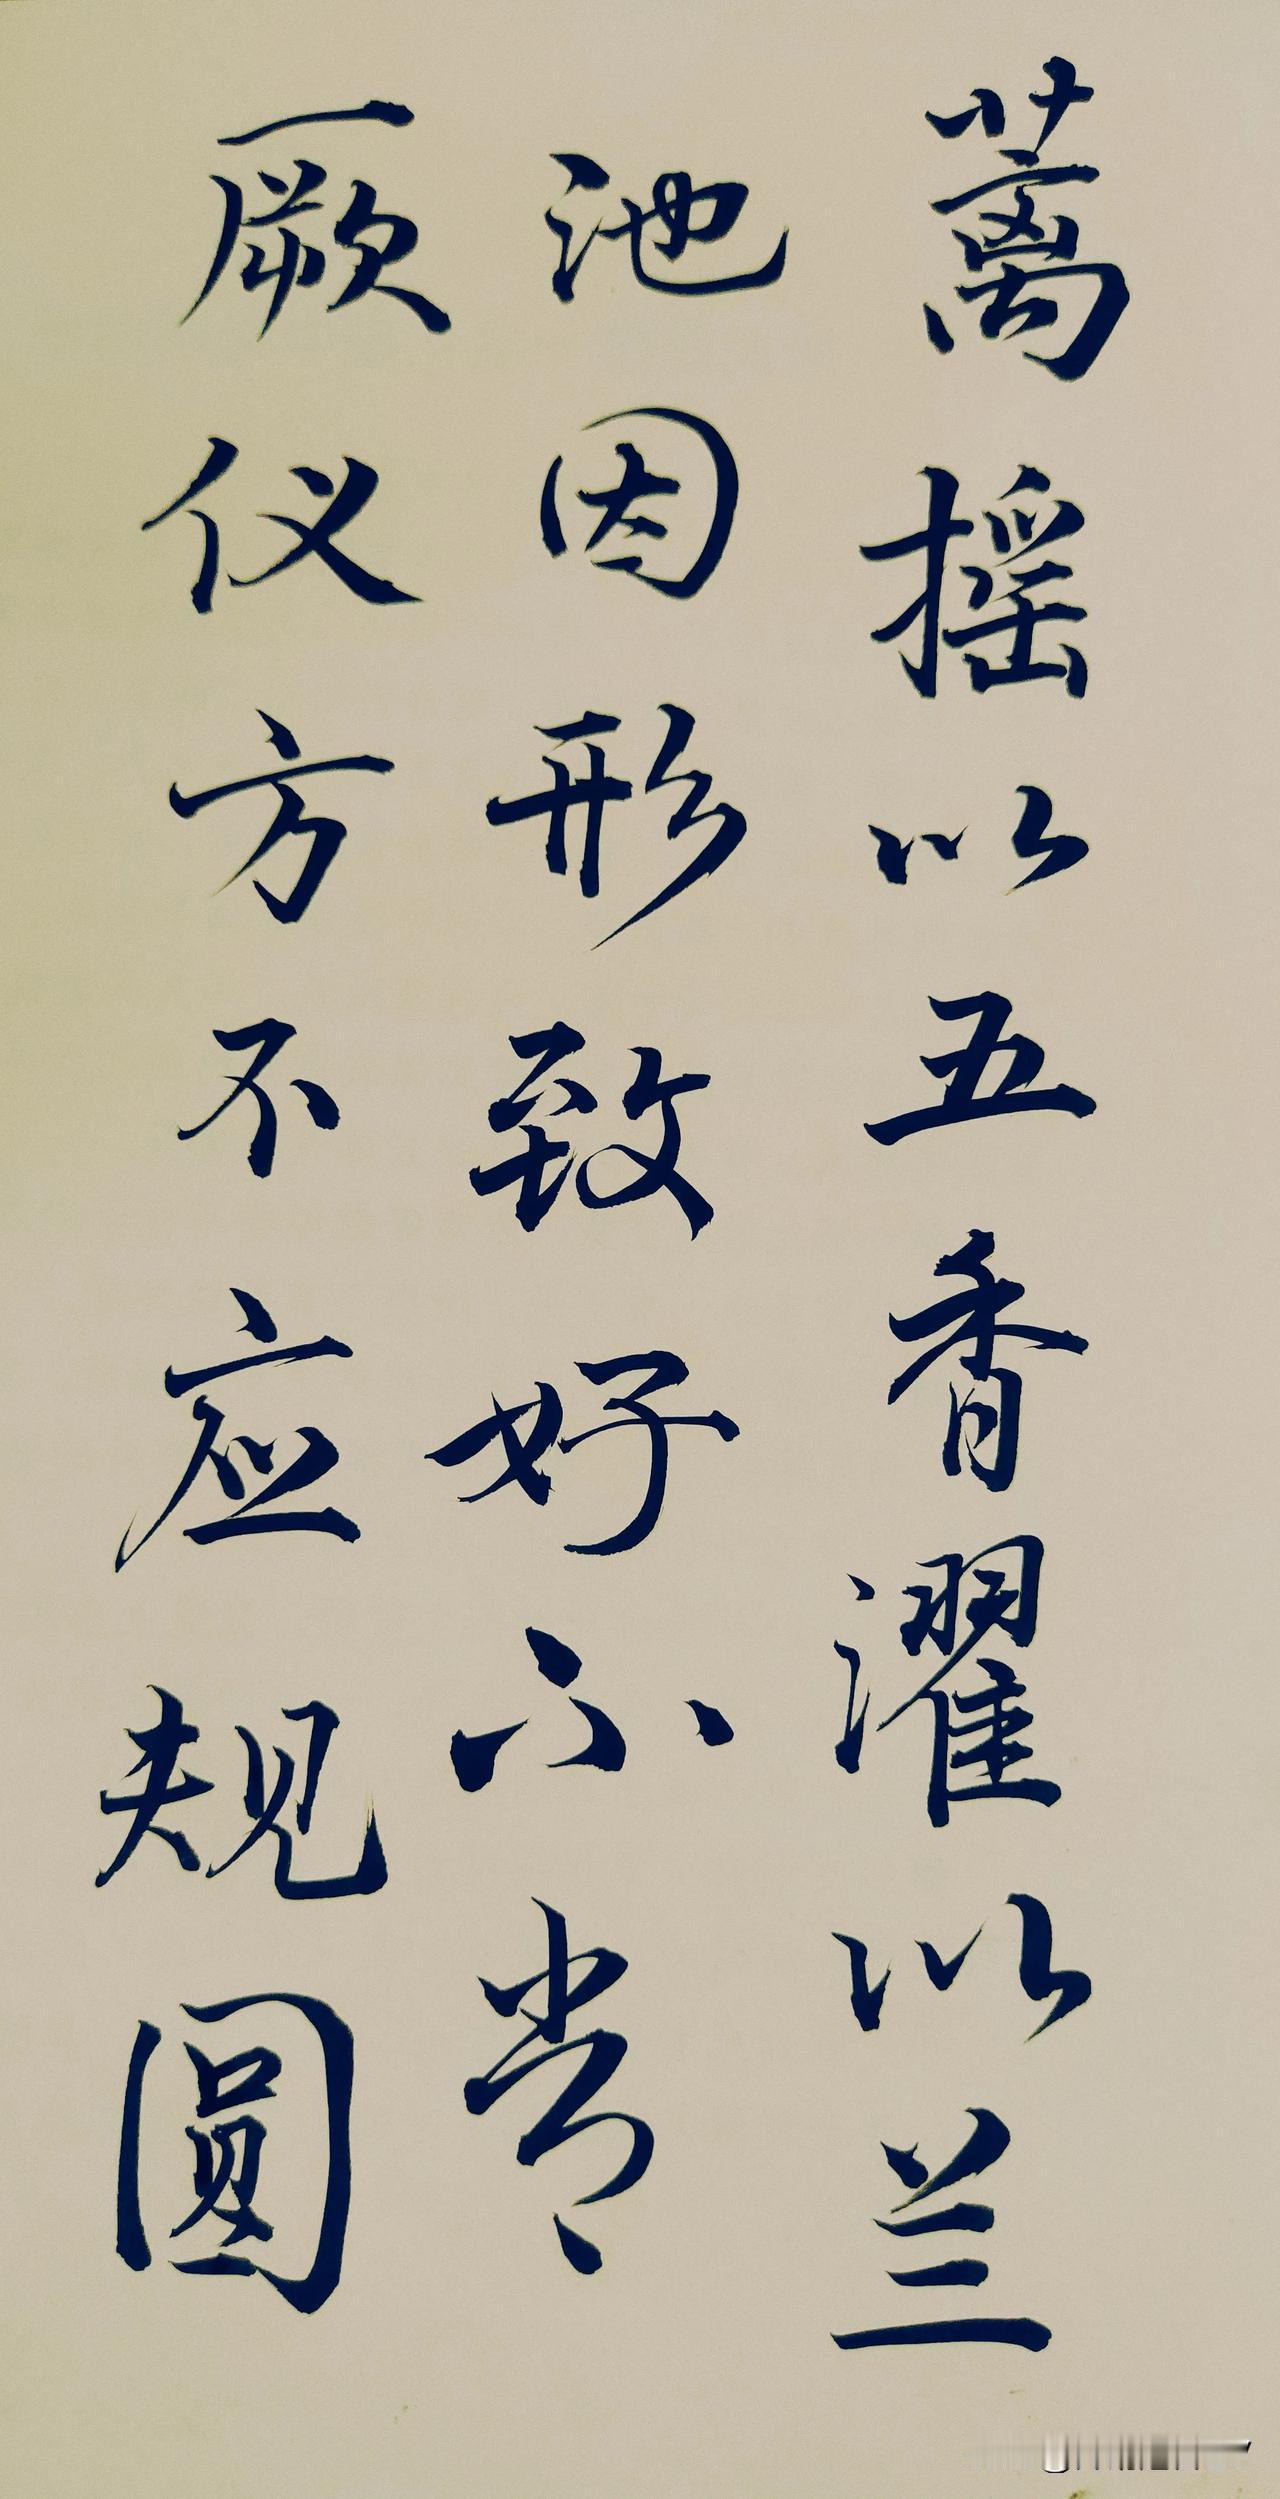 蓠摇以五香濯以兰
池因形致好不常
厥仪方不应规圆